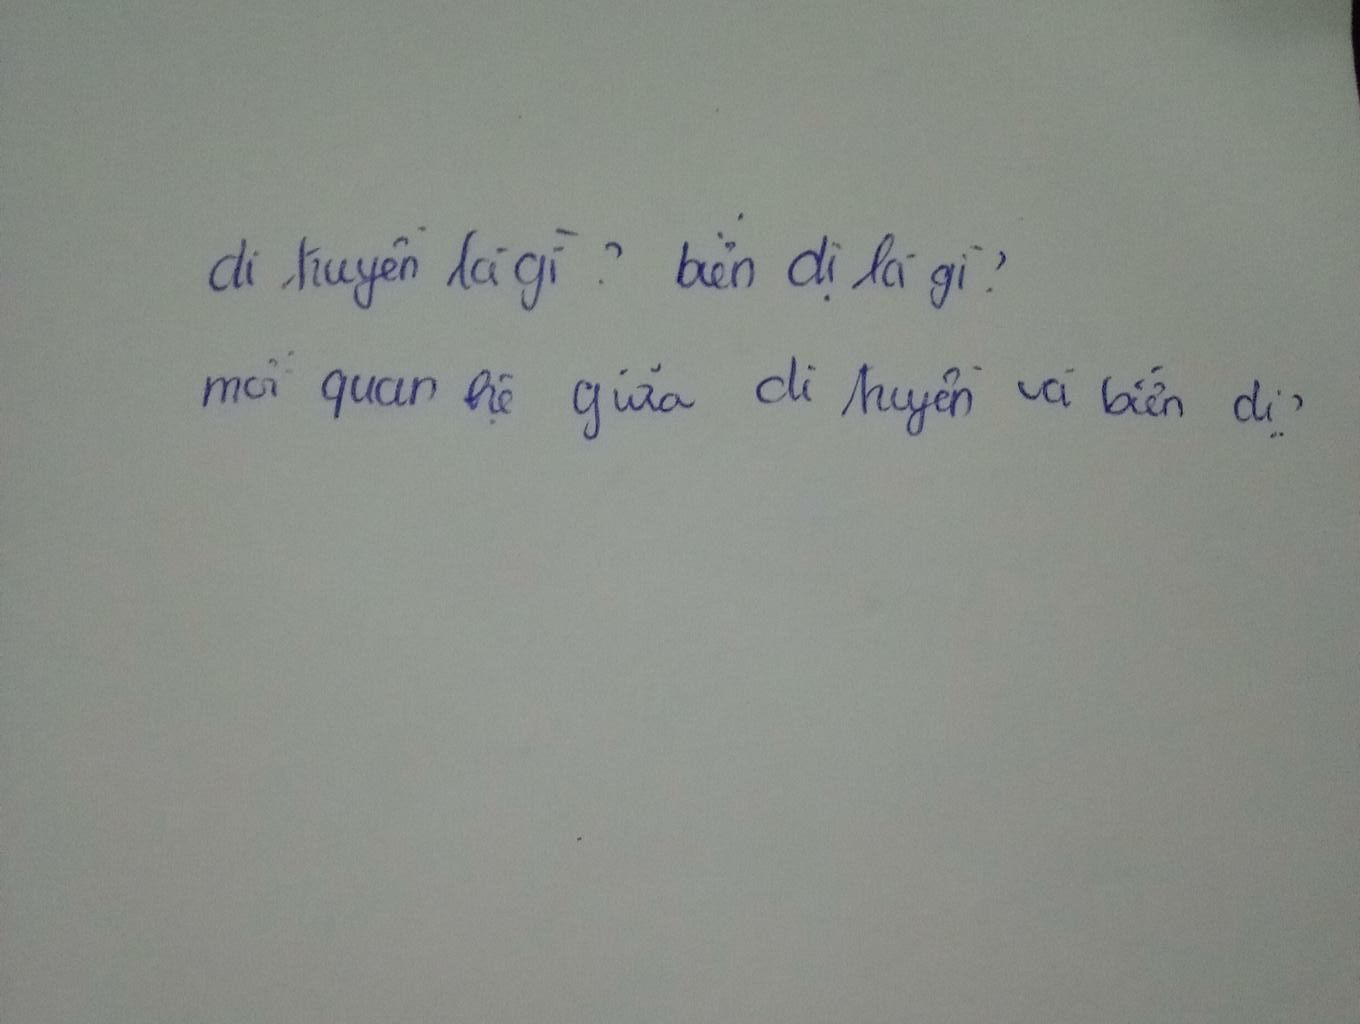 di truyền là gì? biến dị là gì?
mối quan hệ giữa di truyền và biến dị?